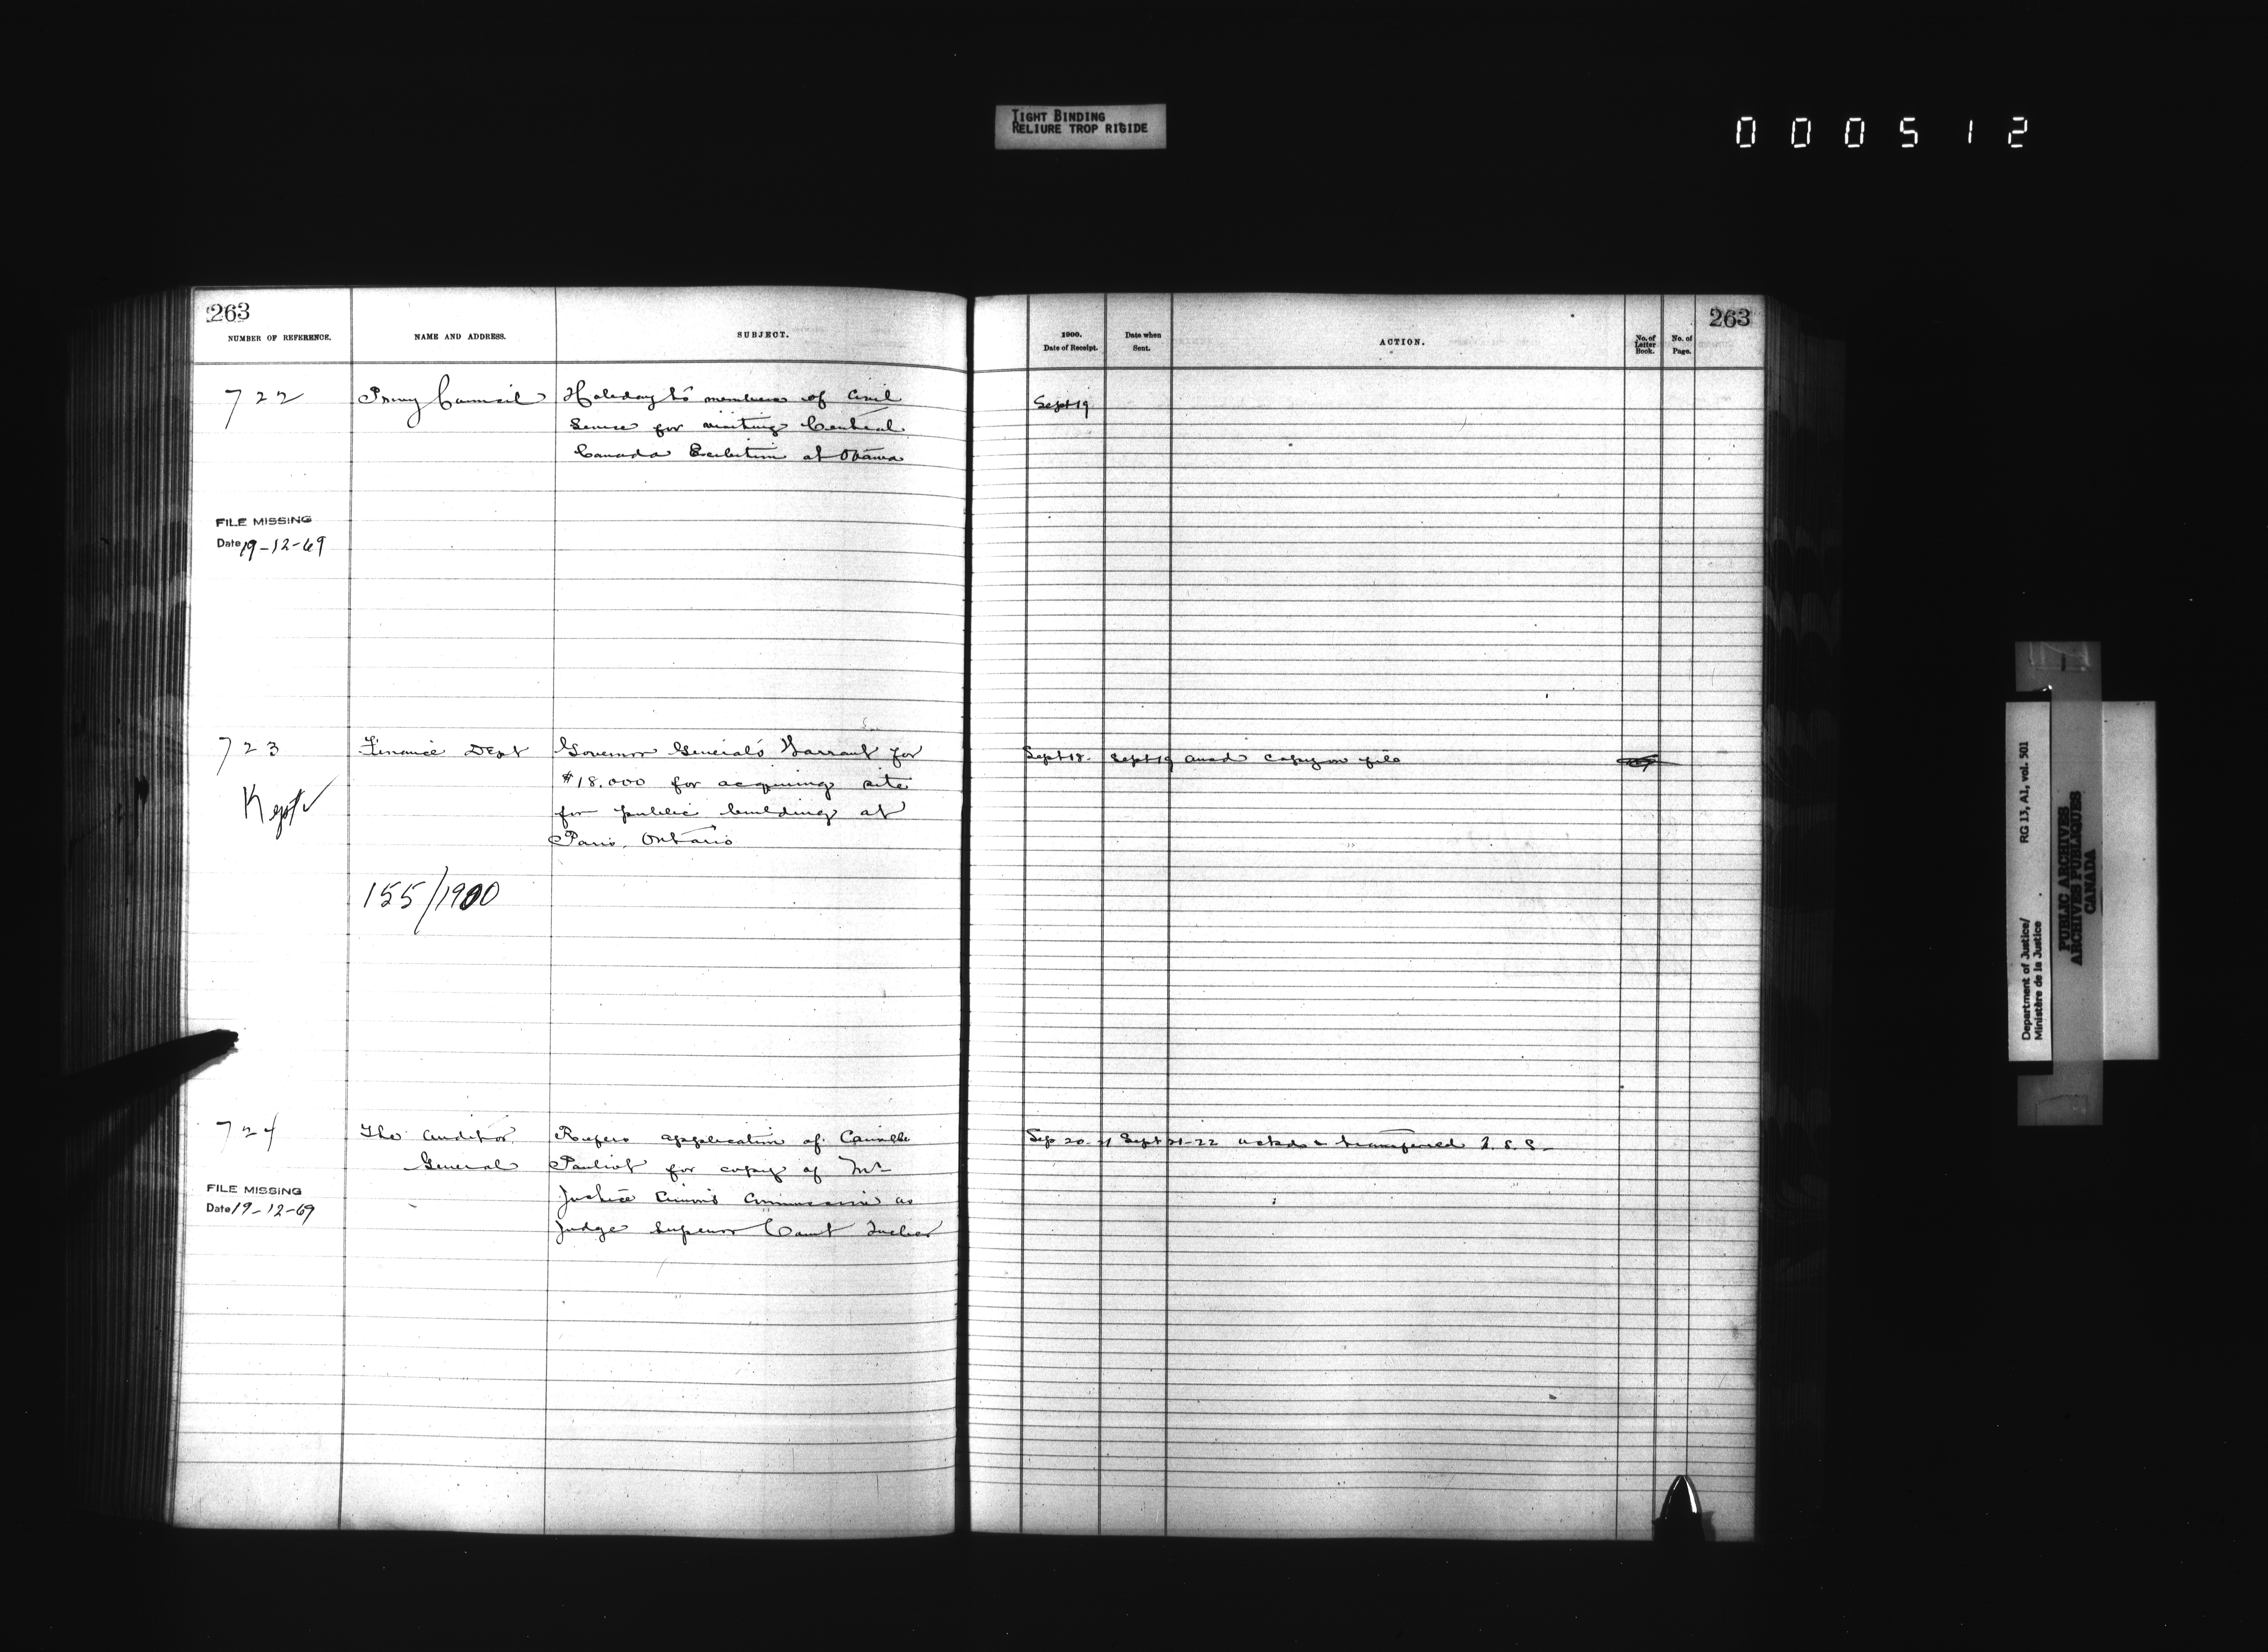 TIGHT BINDING
RELIURE TROP RIGIDE
000512
263
NUMBER OF REFERENCE.
NAME AND ADDRESS.
SUBJECT.
1900.
Date of Receipt.
Date when
Sent.
ACTION.
No. of
Letter
Book.
No. of
Page.
263
722
Privy Council
Holiday to members of Civil
Service for visiting Central
Canada Exhibition at Ottawa
Sept 19
FILE MISSING
Date 19-12-69
723
Finance Dept
Governor General's Warrant for
$18.000 for acquiring site
for public building at
Paris, Ontario
Sept 18.
Sept 19
copy on file
Kept
155/1900
724
The Auditor
General
Refers application of Camille
Pouliot for copy of Mr
Justice Cimon's Commission as
Judge Superior Court Quebec
Sep 20-21
Sept 21-22
ackd & transferred
FILE MISSING
Date 19-12-69
Department of Justice/
Ministère de la Justice
RG 13, A1, vol. 501
PUBLIC ARCHIVES
ARCHIVES PUBLIQUES
CANADA